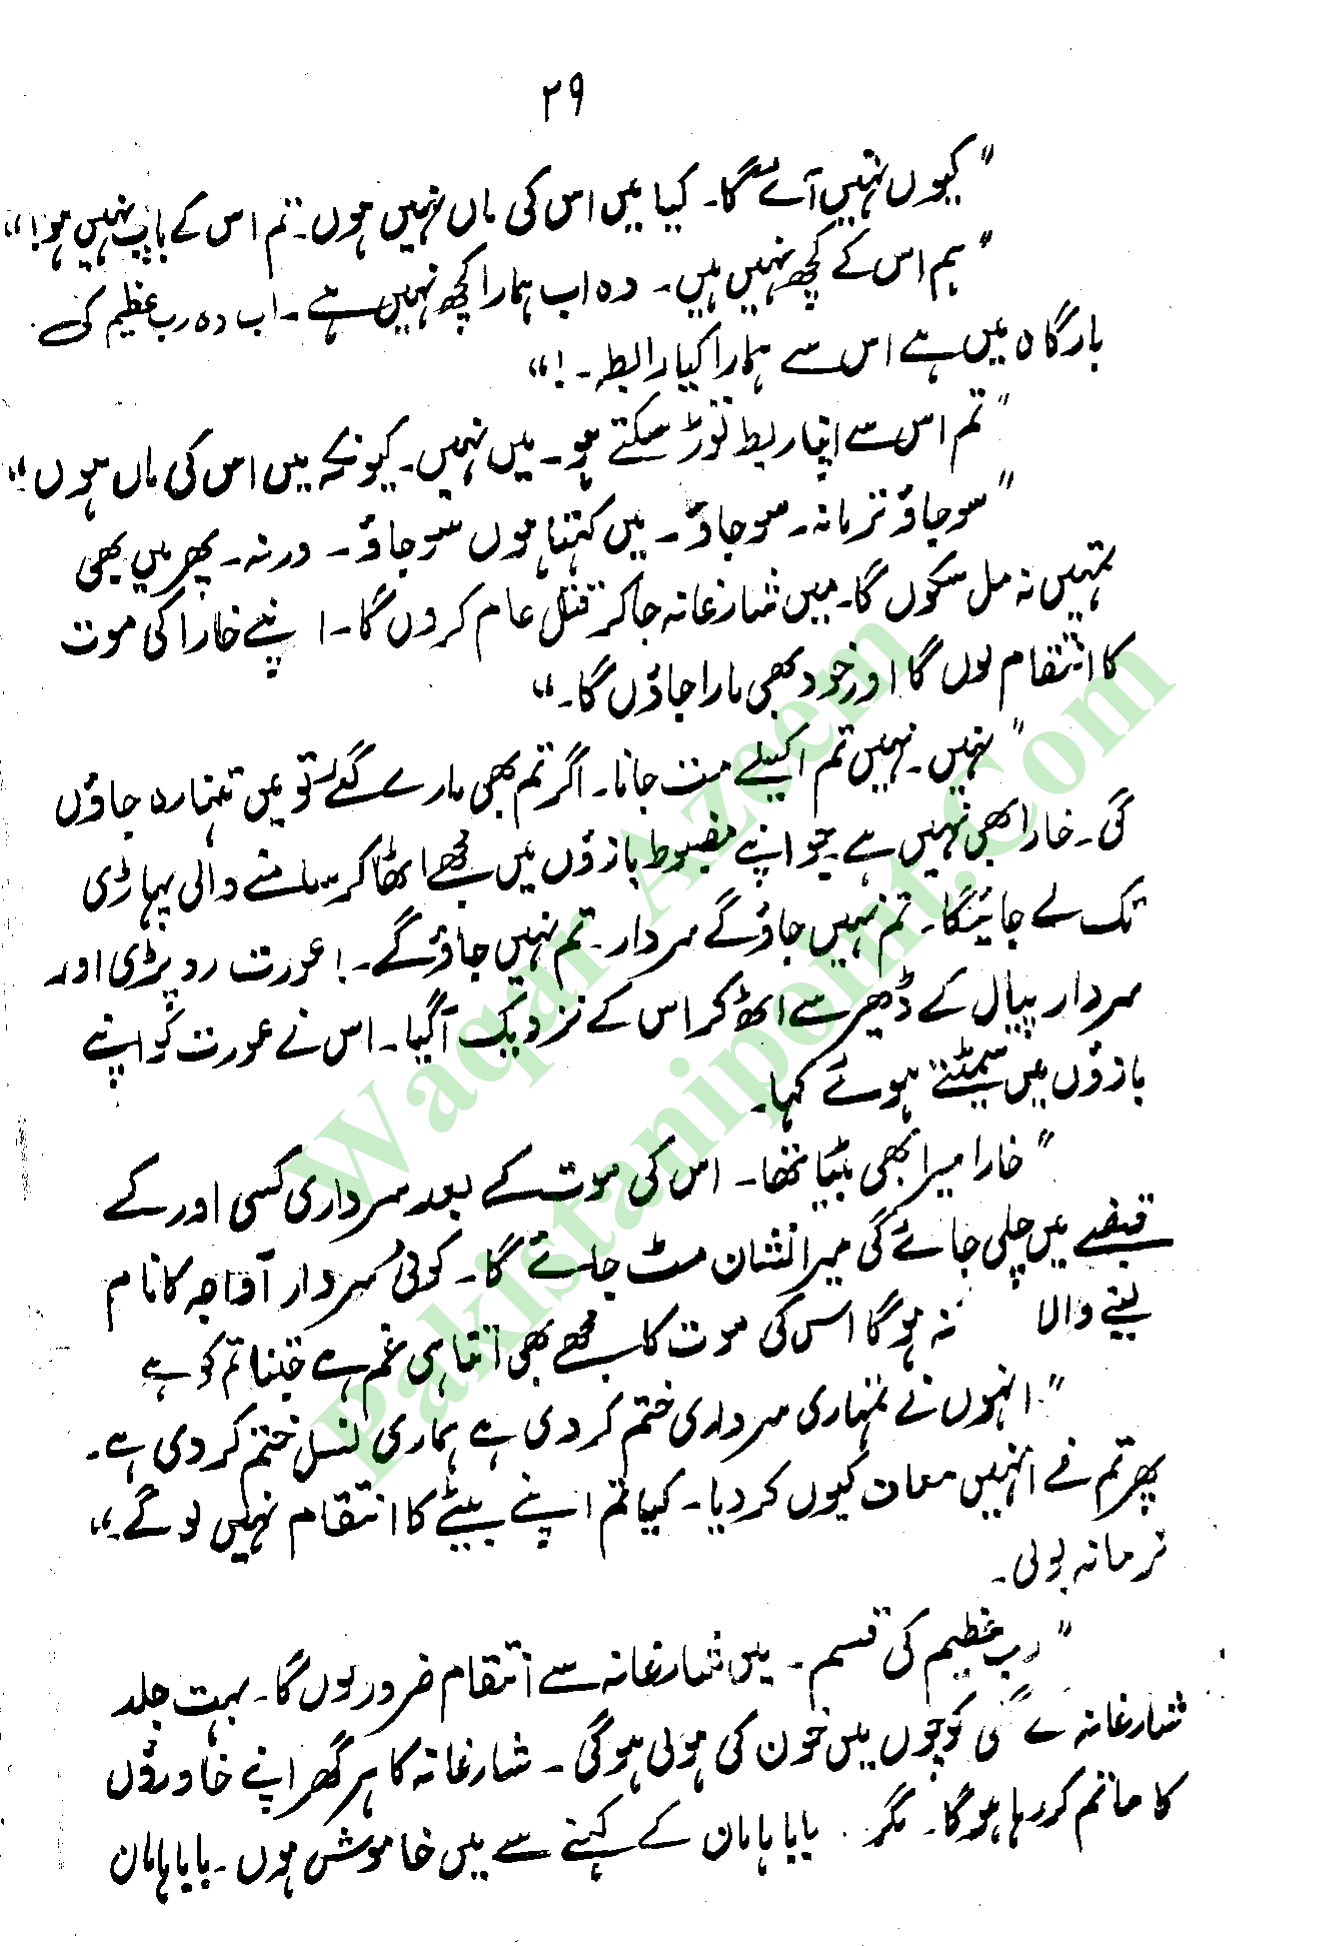 ۲۹
"کیوں نہیں آئے گا۔ کیا میں اس کی ماں نہیں ہوں۔ تم اس کے باپ نہیں ہو!"
"ہم اس کے کچھ نہیں ہیں۔ وہ اب ہمارا کچھ نہیں ہے۔ اب وہ رب عظیم کی
بارگاہ میں ہے اس سے ہمارا کیا رابطہ۔!"
"تم اس سے اپنا ربط توڑ سکتے ہو۔ میں نہیں۔ کیونکہ میں اس کی ماں ہوں"
"سو جاؤ ترمانہ۔ سو جاؤ۔ میں کہتا ہوں سو جاؤ۔ ورنہ۔ پھر میں بھی
تمہیں نہ مل سکوں گا۔ میں شارغانہ جا کر قتل عام کروں گا۔ اپنے خارا کی موت
کا انتقام لوں گا اور خود بھی مارا جاؤں گا۔"
"نہیں۔ نہیں تم اکیلے مت جانا۔ اگر تم بھی مارے گئے تو میں تنہا رہ جاؤں
گی۔ خارا بھی نہیں ہے۔ جو اپنے مضبوط بازوؤں میں مجھے اٹھا کر سامنے والی پہاڑی
تک لے جائیگا۔ تم نہیں جاؤ گے سردار۔ تم نہیں جاؤ گے۔! عورت رو پڑی اور
سردار پیال کے ڈھیر سے اٹھ کر اس کے نزدیک آ گیا۔ اس نے عورت کو اپنے
بازوؤں میں سمیٹتے ہوئے کہا۔
"خارا میرا بھی بیٹا تھا۔ اس کی موت کے بعد سرداری کسی اور کے
قبضے میں چلی جائے گی میرا نشان مٹ جائے گا۔ کوئی سردار آفاجہ کا نام
لینے والا نہ ہو گا اس کی موت کا مجھے بھی اتنا ہی غم ہے جتنا تم کو ہے
"انہوں نے تمہاری سرداری ختم کر دی ہے ہماری نسل ختم کر دی ہے۔
پھر تم نے انہیں معاف کیوں کر دیا۔ کیا تم اپنے بیٹے کا انتقام نہیں لو گے۔"
ترمانہ بولی۔
"رب عظیم کی قسم۔ میں شارغانہ سے انتقام ضرور لوں گا۔ بہت جلد
شارغانہ کے گلی کوچوں میں خون کی ہولی ہو گی۔ شارغانہ کا ہر گھر اپنے
کا ماتم کر رہا ہو گا۔ مگر۔ بابا ہامان کے کہنے سے میں خاموش ہوں۔ بابا ہامان
Waqar Azeem
Pakistanipoint.Com